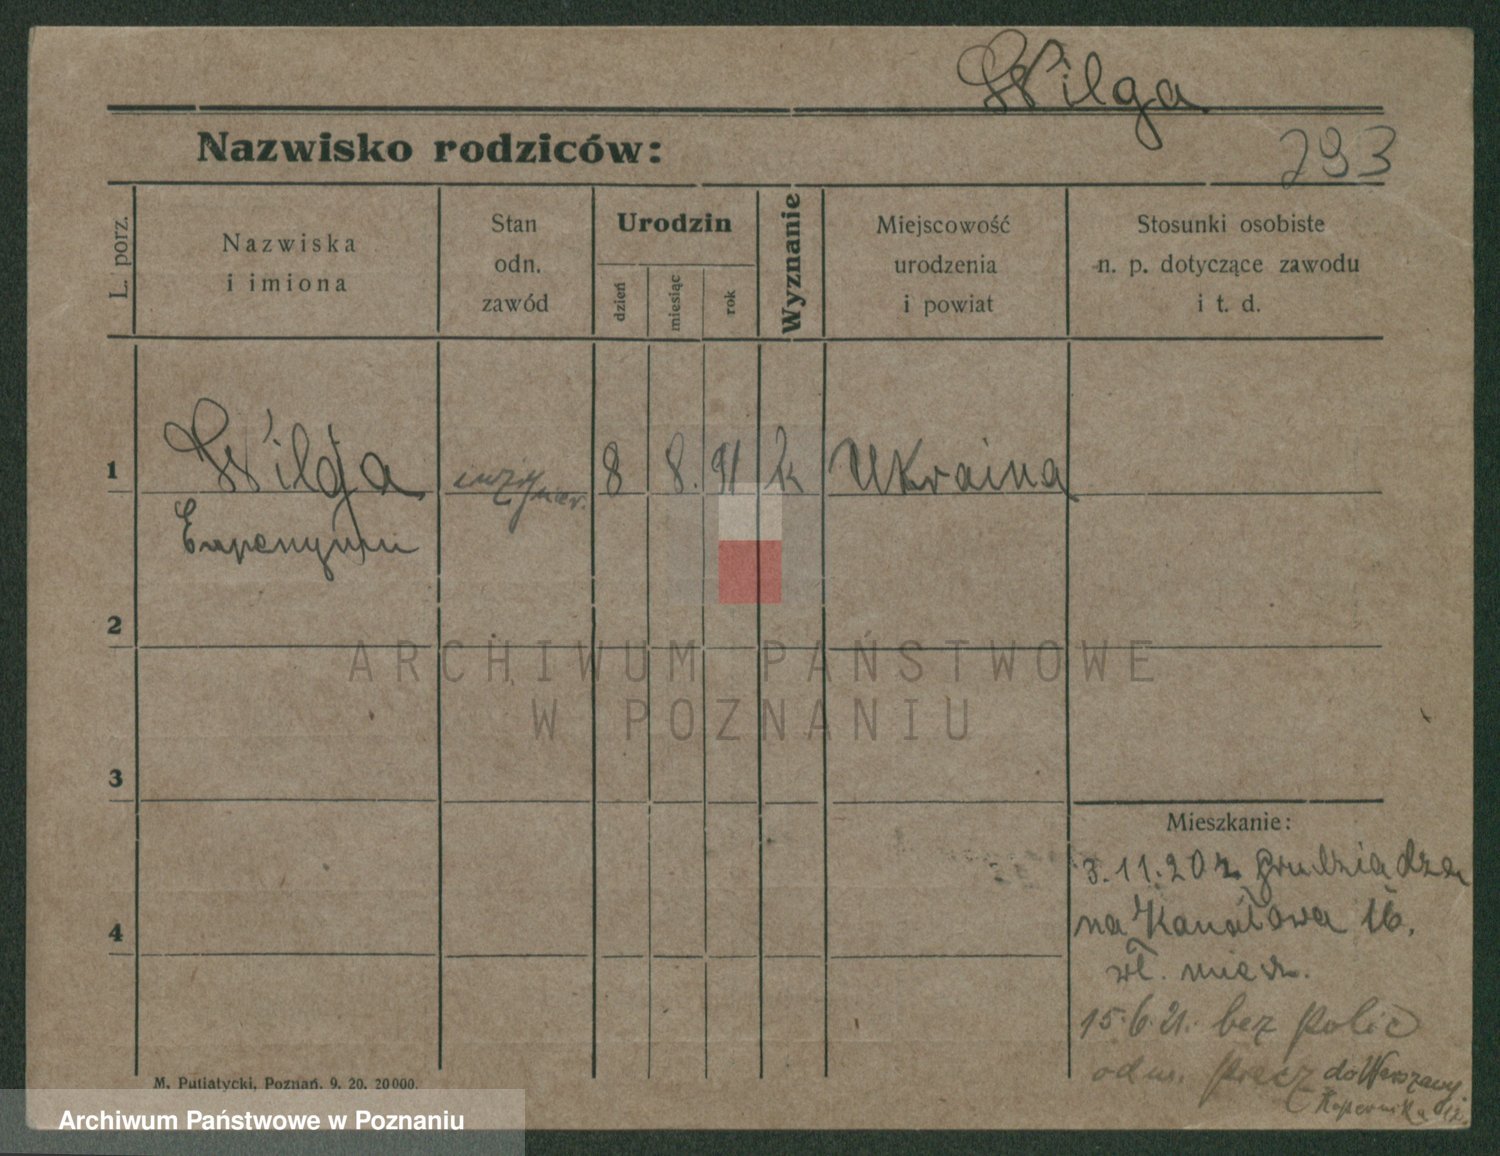 Wilga
293
Nazwisko rodziców:
L. porz.
Nazwiska
i imiona
Stan
odn.
zawód
Urodzin
dzień
miesiąc
rok
Wyznanie
Miejscowość
urodzenia
i powiat
Stosunki osobiste
n. p. dotyczące zawodu
i t. d.
1
Wilga
inżynier.
8
8.
91
k
Ukraina
2
3
4
Mieszkanie:
3.11.20 z Grudziądza
na Kanałowa 16.
wł. miesz.
15.6.21. bez polic
odm. precz do Warszawy
Kopernika 12.
M. Putiatycki, Poznań. 9. 20. 20000.
ARCHIWUM PAŃSTWOWE
W POZNANIU
Archiwum Państwowe w Poznaniu